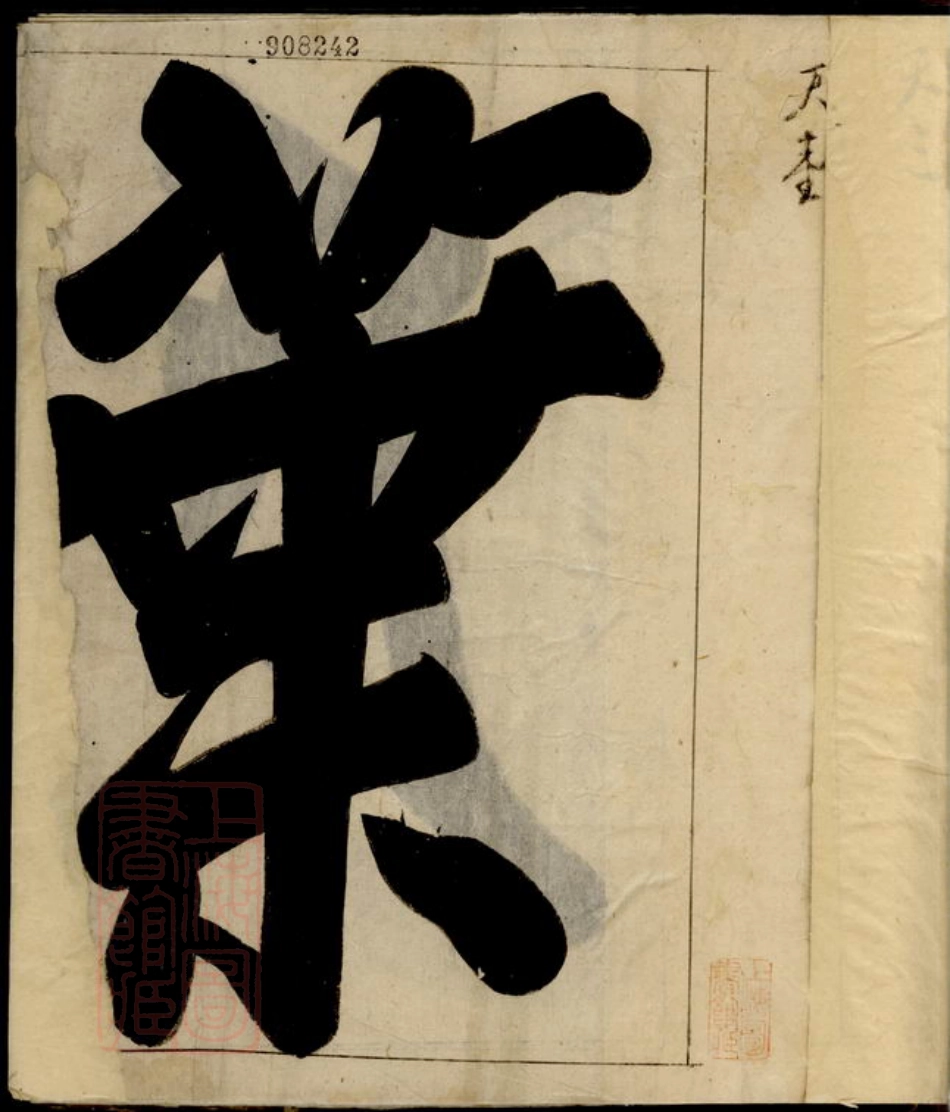 908242
葉
上海圖
書館藏
上海圖
書館藏